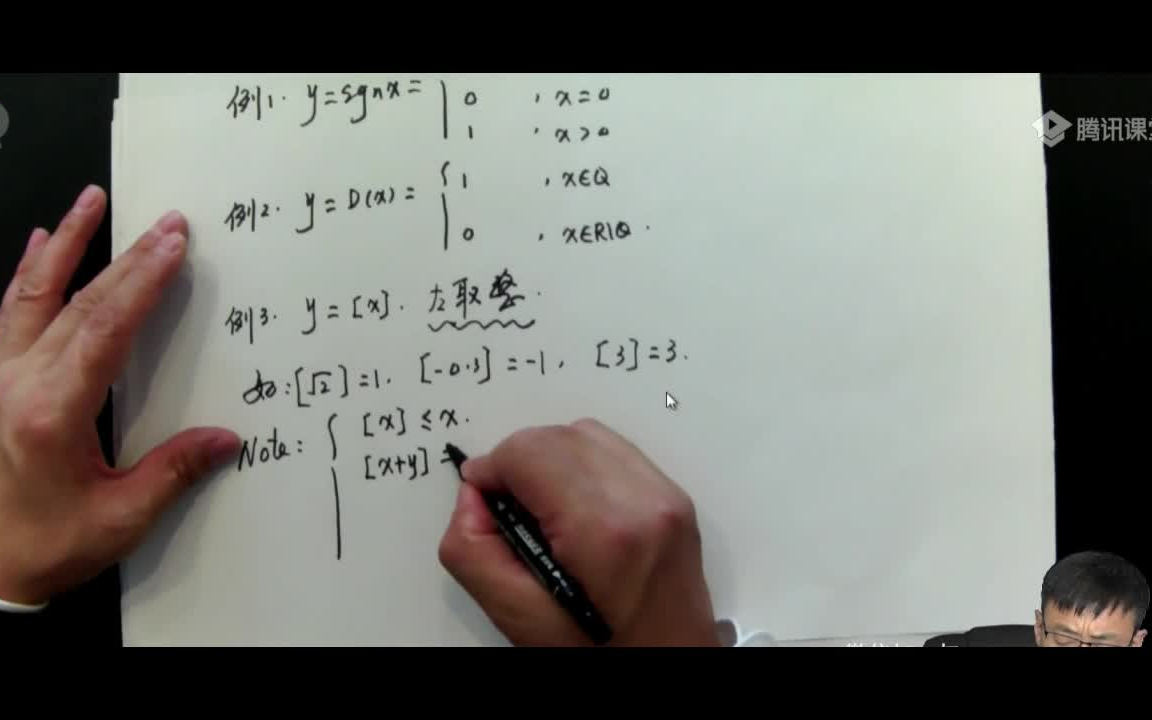 例1. y=sgnx= { 0 , x=0
1 , x>0
例2. y=D(x)= { 1 , x∈Q
0 , x∈R\Q.
例3. y=[x]. 左取整.
如:[√2]=1. [-0.3]=-1, [3]=3.
Note: { [x]≤x.
[x+y] =
腾讯课堂